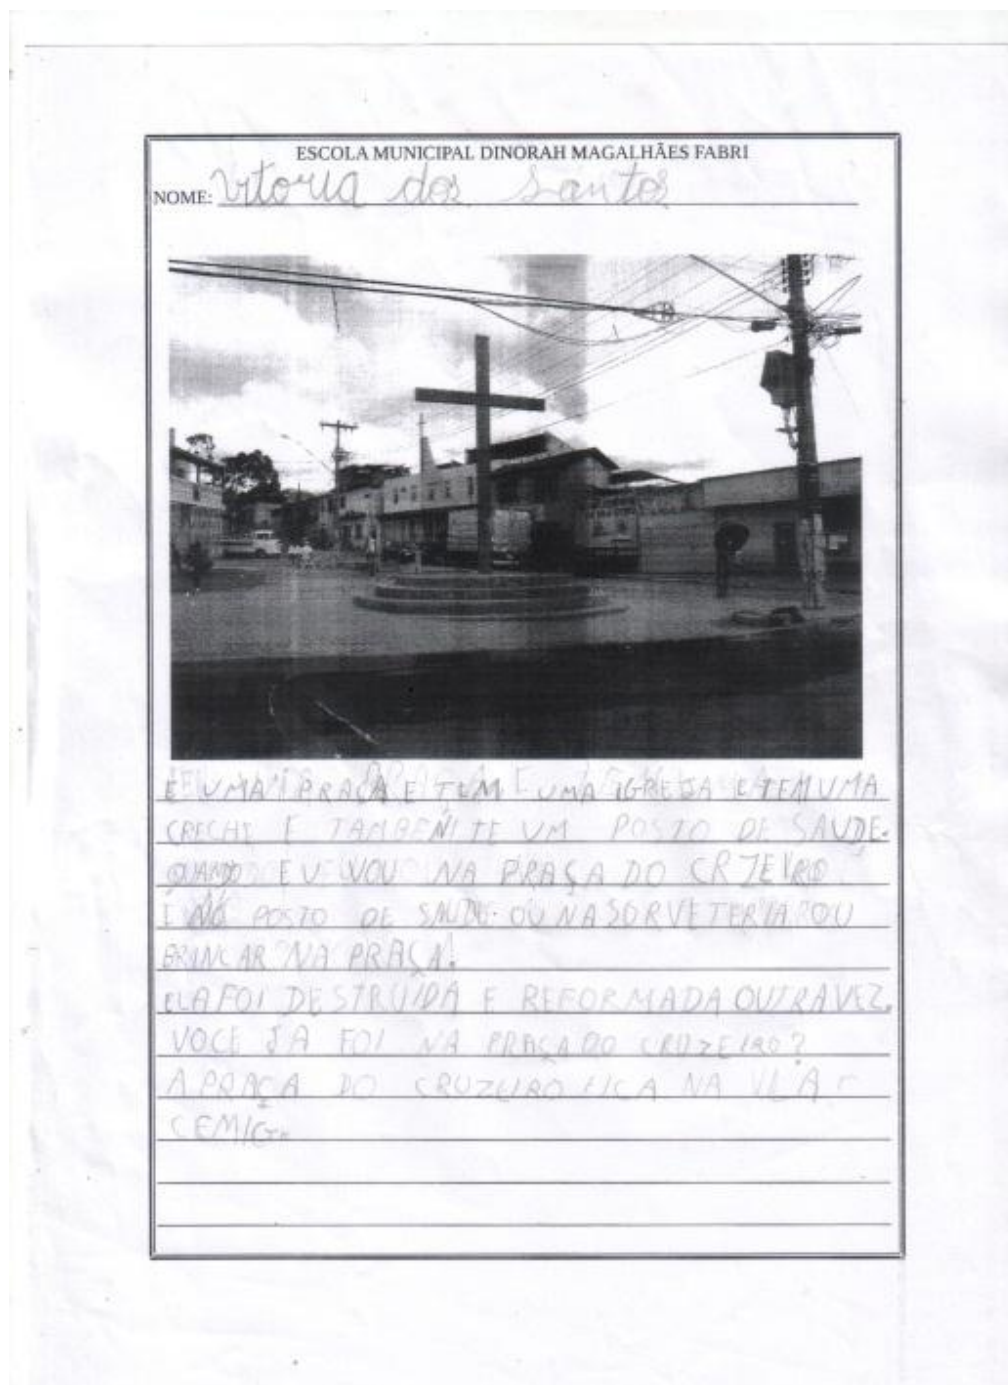 ESCOLA MUNICIPAL DINORAH MAGALHÃES FABRI
NOME: Vitoria dos Santos
E UMA PRAÇA E TEM UMA IGREJA E TEM UMA
CRECHE E TAMBENI TE UM POSTO DE SAUDE.
QUANDO EU VOU NA PRAÇA DO CRZEIRO
E NO POSTO DE SAUDE. OU NA SORVETERIA OU
BRINCAR NA PRAÇA.
ELA FOI DESTRUIDA E REFORMADA OUTRA VEZ.
VOCE JA FOI NA PRAÇA DO CRUZEIRO?
A PRAÇA DO CRUZEIRO FICA NA VLA
CEMIG.